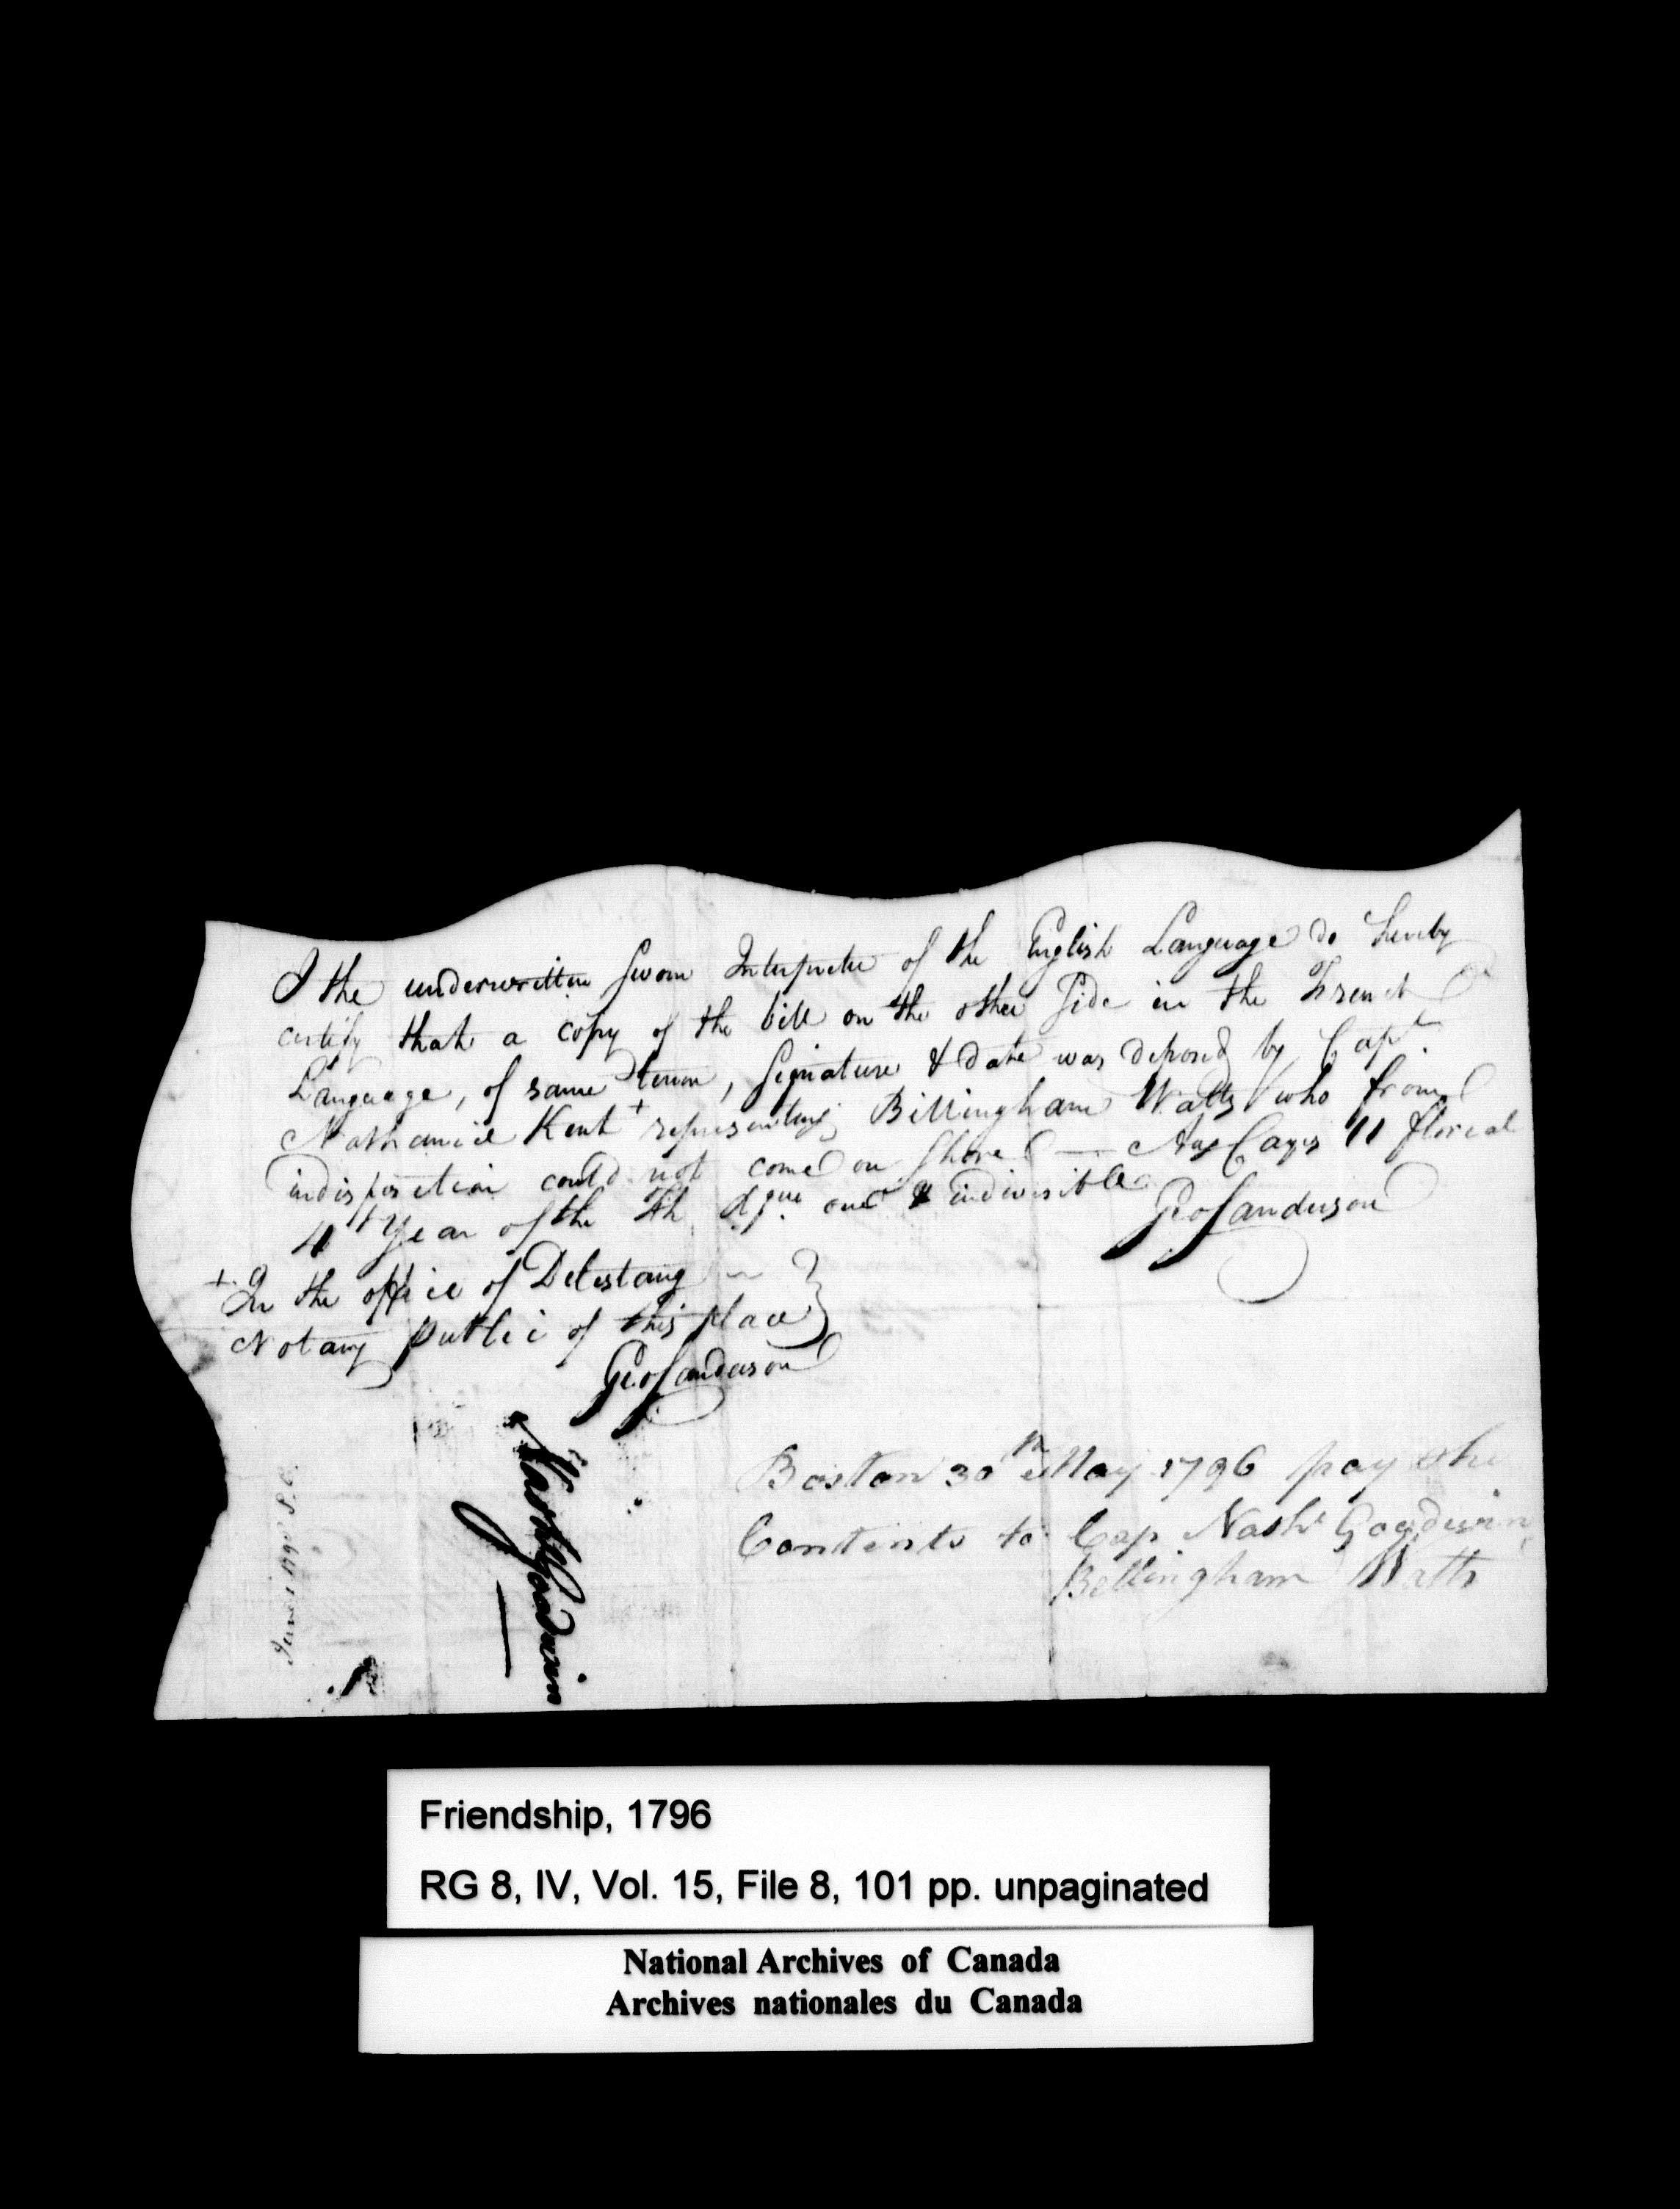 I the underwritten Sworn Interpreter of the English Language do hereby
certify that a copy of the bill on the other Side in the French
Language, of same tenor, Signature & date was deposed by Capt.
Nathaniel Kent + representing Billingham Watts who from
indisposition could not come on Shore — Aux Cayes 11 floreal
4th Year of the fch Rque one & indivisible
Geo Sanderson
+ In the office of Delestang
Notary public of this place }
Geo Sanderson
Boston 30th May 1796 pay the
Contents to Cap Nathl Goodwin
Bellingham Watts
Nathl Goodwin
Friendship, 1796
RG 8, IV, Vol. 15, File 8, 101 pp. unpaginated
National Archives of Canada
Archives nationales du Canada